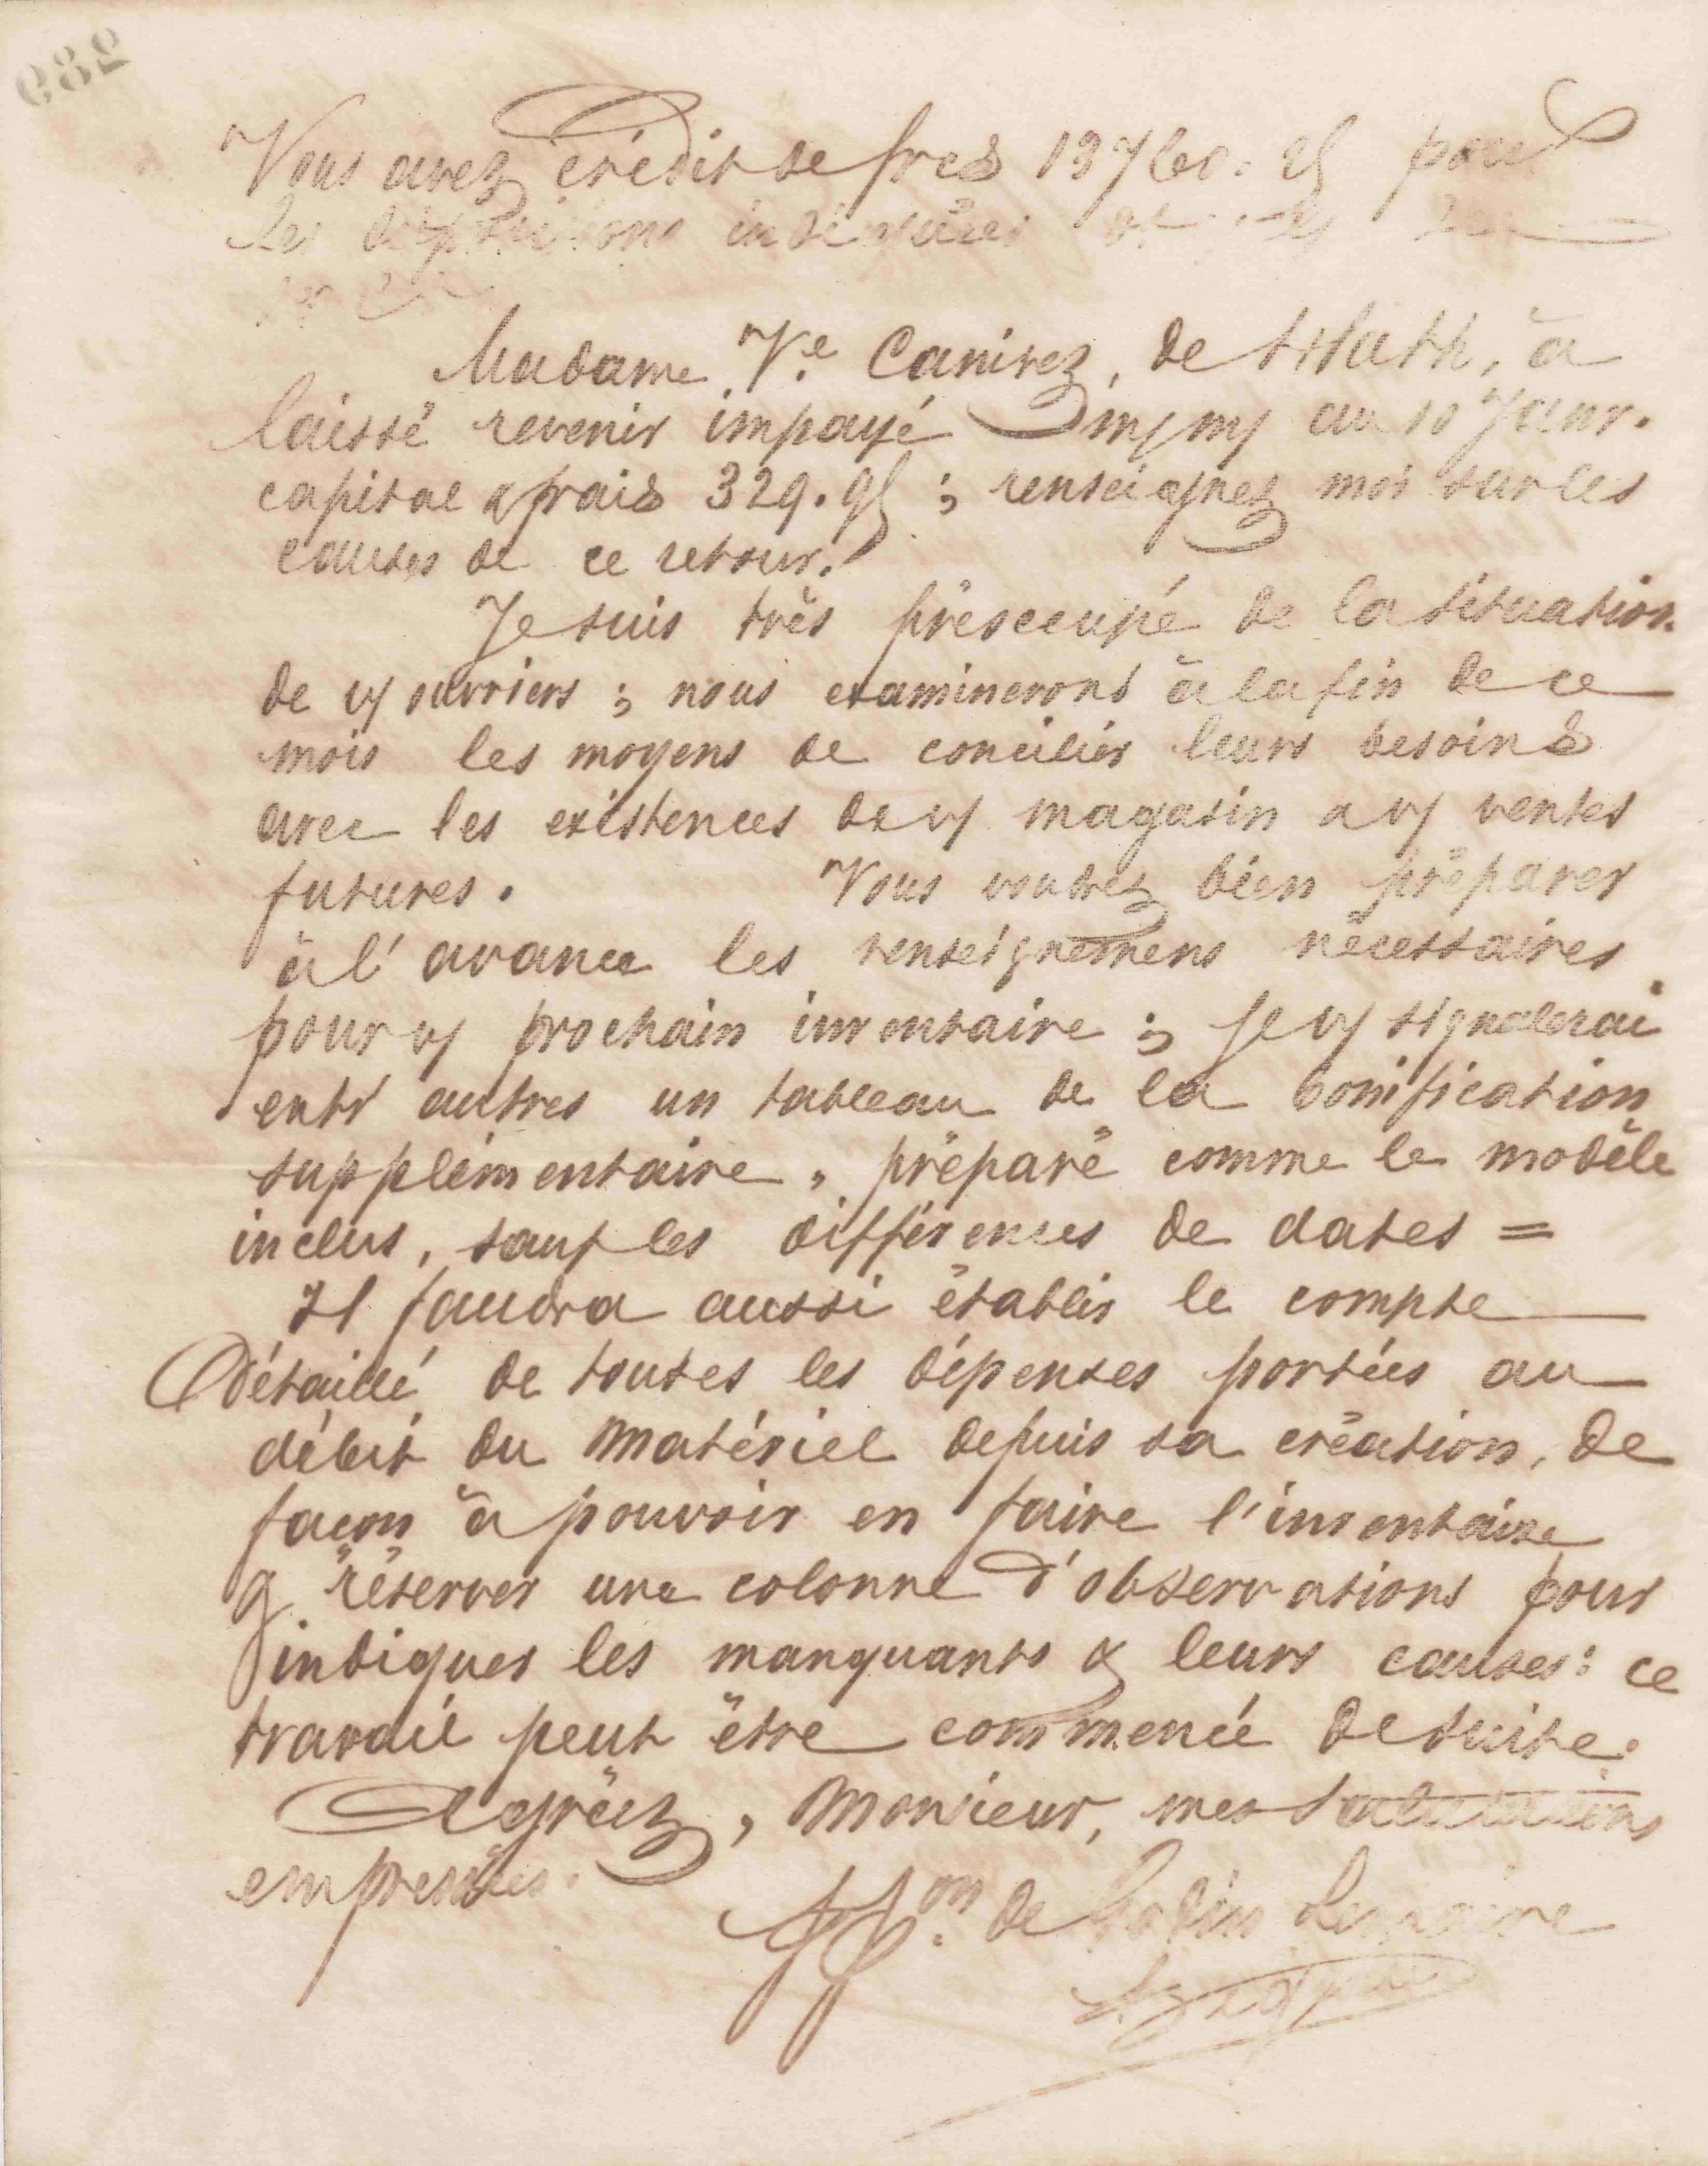 289
Vous avez crédit de frcs 13760.25 pour
les dispositions indiquées
Madame Ve Canivez, de , à
laissé revenir impayé m/m/ au 10 Janr.
capital & frais 329.95 ; renseignez moi sur les
causes de ce retour.
Je suis très préoccupé de la situation
de v/ ouvriers ; nous examinerons à la fin de ce
mois les moyens de concilier leurs besoins
avec les existences de v/ magasin & v/ ventes
futures. Vous voudrez bien préparer
à l'avance les renseignemens nécessaires
pour v/ prochain inventaire ; je v/ signalerai
entr autres un tableau de la bonification
supplémentaire, préparé comme le modèle
inclus, sauf les différences de dates =
Il faudra aussi établir le compte
Détaillé de toutes les dépenses portées au
débit du Matériel depuis sa création, de
façon à pouvoir en faire l'inventaire
& réserver une colonne d'observations pour
indiquer les manquants & leurs causes : ce
travail peut être commencé de suite.
Agréez, Monsieur, mes salutations
empressées.
de Godin Lemaire